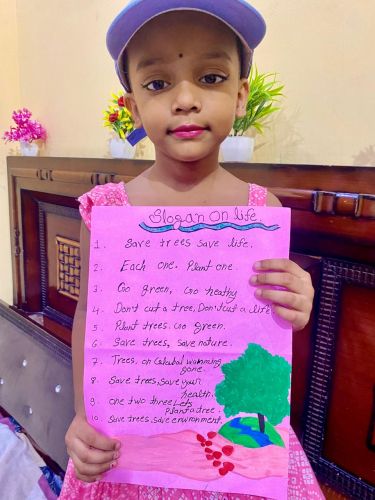 Slogan On life.
1. Save trees save life.
2. Each one. Plant one.
3. Go green, Go heathy
4. Don't cut a tree, Don't cut a life
5. Plant trees. Go green.
6. Save trees, save nature.
7. Trees, on Glabal wamming
gone.
8. Save trees, save your
health.
9. one two three Lets
plant a tree.
10. Save trees, save environment.